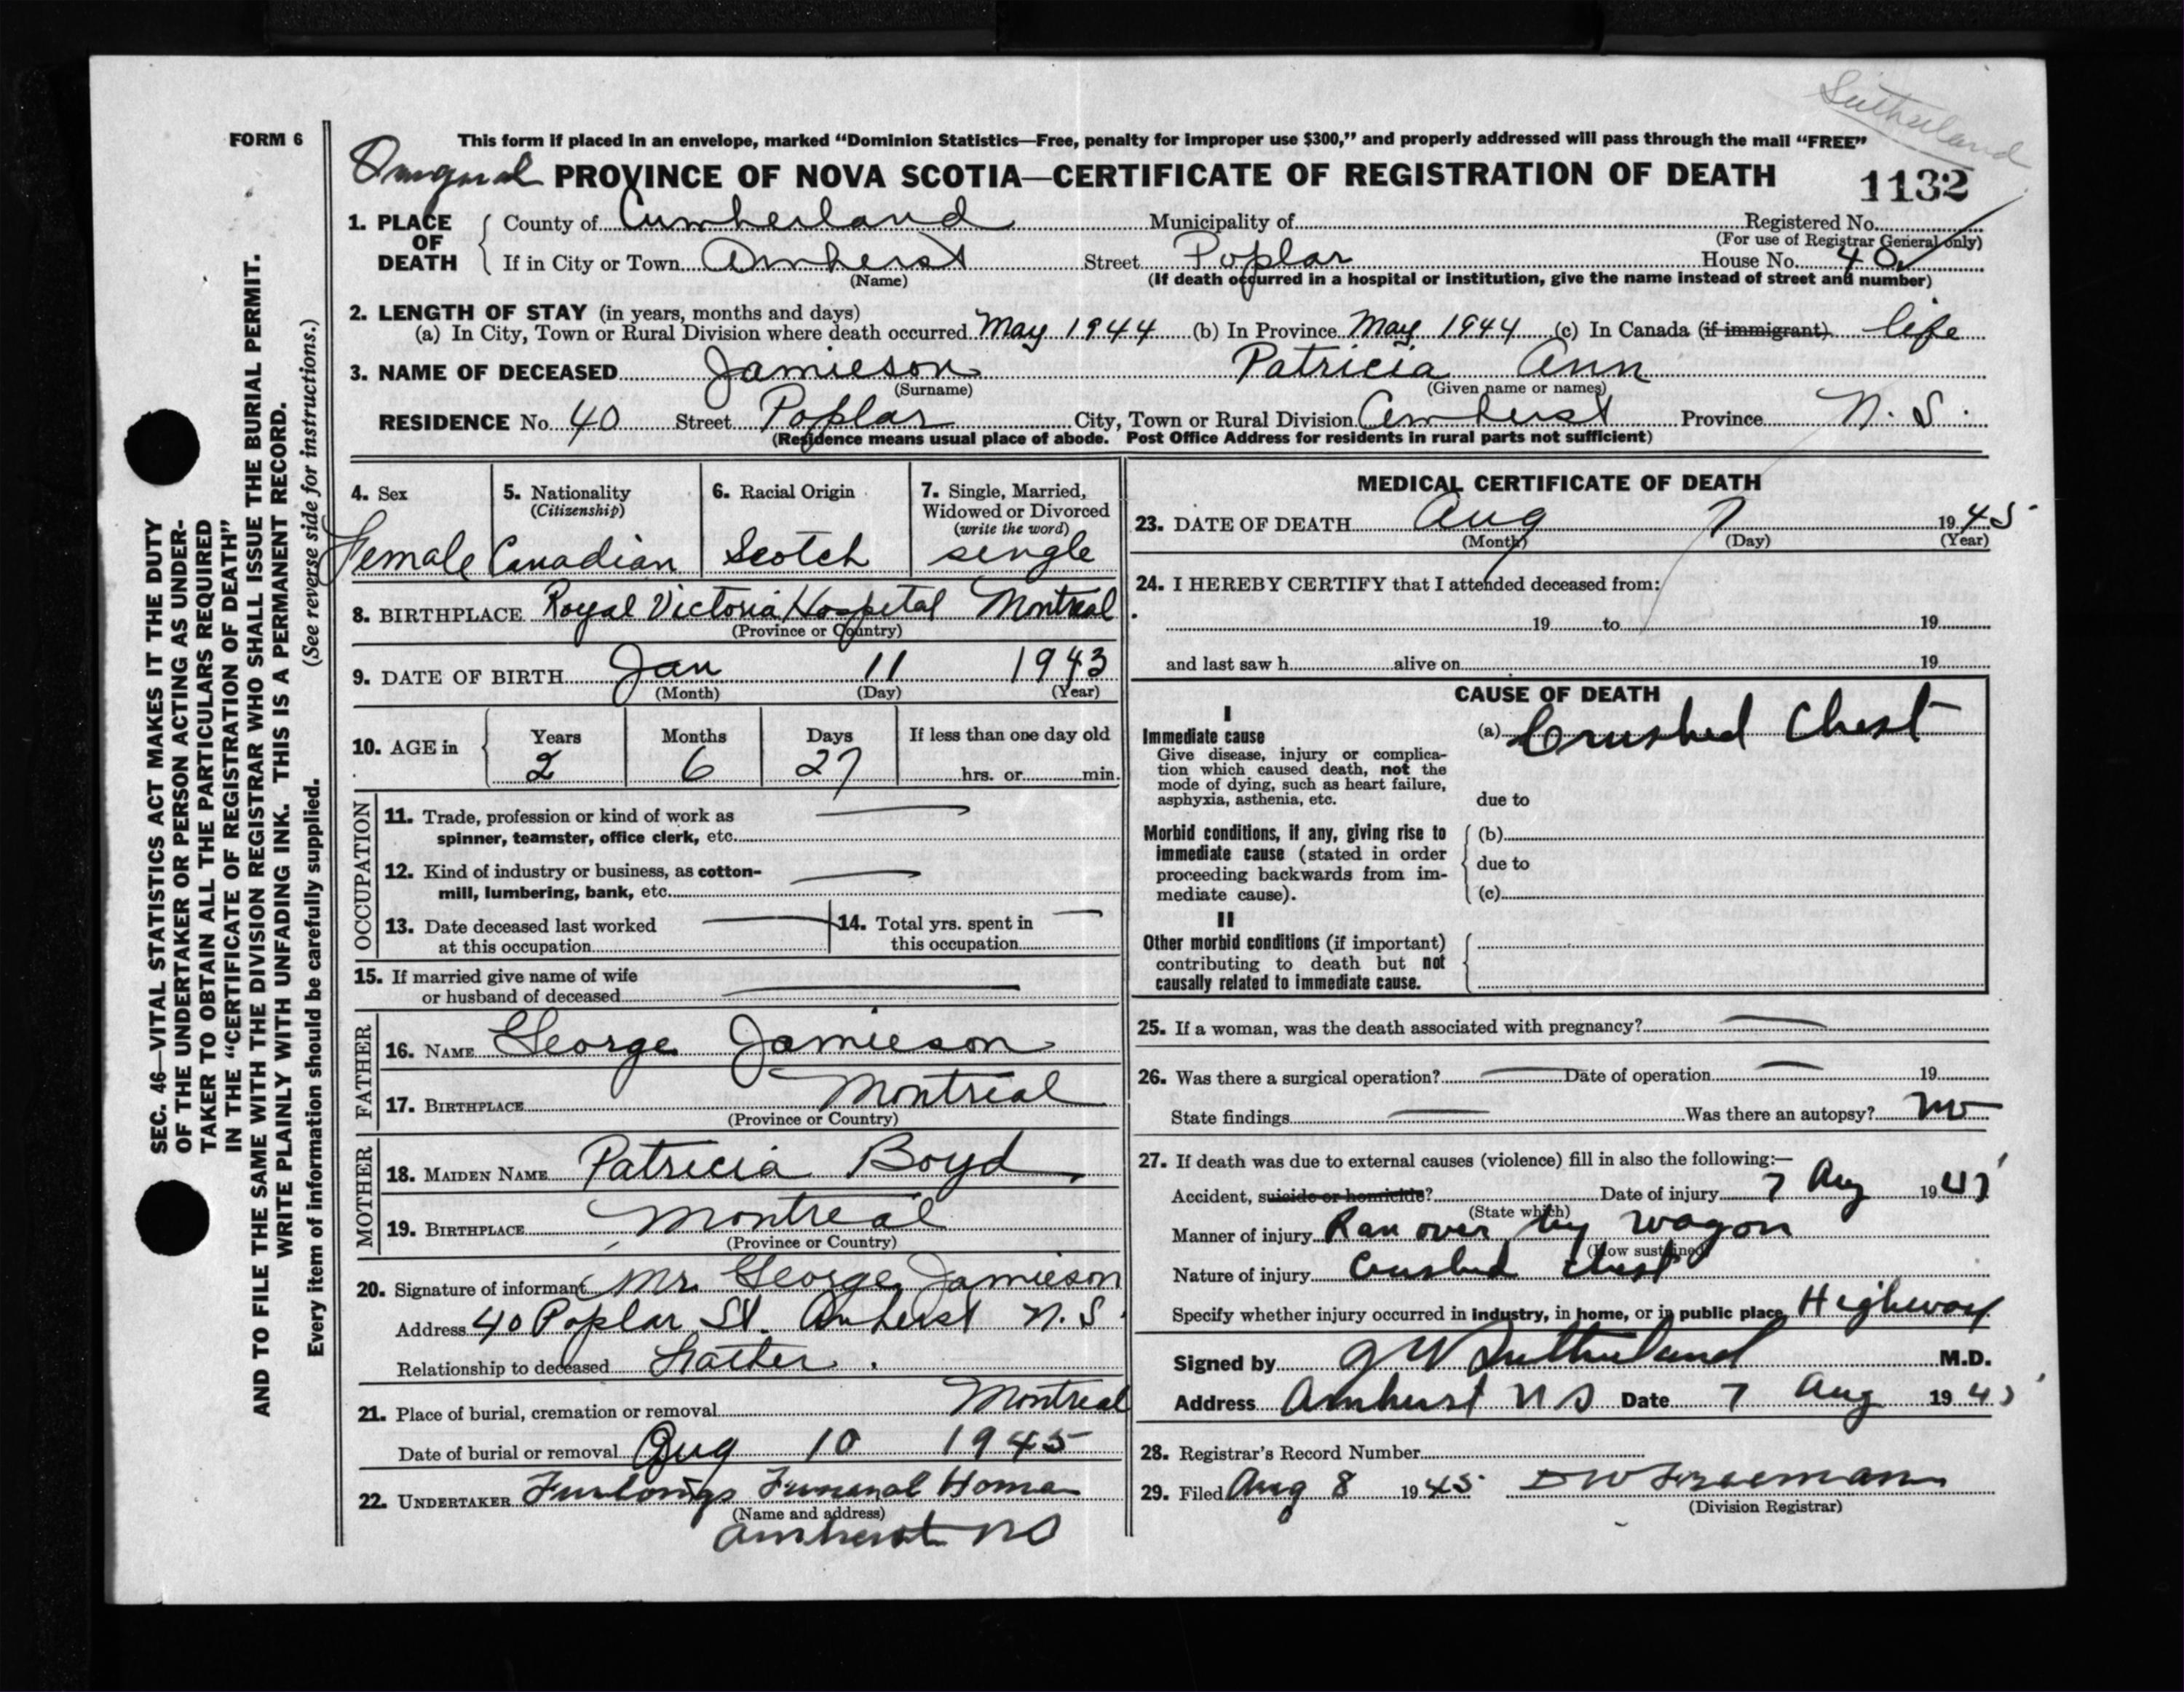 Sutherland
FORM 6
This form if placed in an envelope, marked "Dominion Statistics—Free, penalty for improper use $300," and properly addressed will pass through the mail "FREE"
PROVINCE OF NOVA SCOTIA—CERTIFICATE OF REGISTRATION OF DEATH
1132
1. PLACE OF DEATH
County of Cumberland Municipality of Registered No.
(For use of Registrar General only)
If in City or Town Amherst Street Poplar House No. 40
(Name) (If death occurred in a hospital or institution, give the name instead of street and number)
2. LENGTH OF STAY (in years, months and days)
(a) In City, Town or Rural Division where death occurred May 1944 (b) In Province May 1944 (c) In Canada (if immigrant) life
3. NAME OF DECEASED Jamieson Patricia Ann
(Surname) (Given name or names)
RESIDENCE No. 40 Street Poplar City, Town or Rural Division Amherst Province N. S.
(Residence means usual place of abode. Post Office Address for residents in rural parts not sufficient)
4. Sex
Female
5. Nationality
(Citizenship)
Canadian
6. Racial Origin
Scotch
7. Single, Married,
Widowed or Divorced
(write the word)
single
8. BIRTHPLACE Royal Victoria Hospital Montreal
(Province or Country)
9. DATE OF BIRTH Jan 11 1943
(Month) (Day) (Year)
10. AGE in
Years Months Days If less than one day old
2 6 27 hrs. or min.
OCCUPATION
11. Trade, profession or kind of work as
spinner, teamster, office clerk, etc.
12. Kind of industry or business, as cotton-
mill, lumbering, bank, etc.
13. Date deceased last worked
at this occupation
14. Total yrs. spent in
this occupation
15. If married give name of wife
or husband of deceased
FATHER
16. NAME George Jamieson
17. BIRTHPLACE Montreal
(Province or Country)
MOTHER
18. MAIDEN NAME Patricia Boyd
19. BIRTHPLACE Montreal
(Province or Country)
20. Signature of informant Mr. George Jamieson
Address 40 Poplar St. Amherst N. S.
Relationship to deceased Father.
21. Place of burial, cremation or removal Montreal
Date of burial or removal Aug 10 1945
22. UNDERTAKER Furlongs Funeral Home
(Name and address)
Amherst NS
MEDICAL CERTIFICATE OF DEATH
23. DATE OF DEATH Aug 7 1945
(Month) (Day) (Year)
24. I HEREBY CERTIFY that I attended deceased from:
19 to 19
and last saw h alive on 19
CAUSE OF DEATH
I
Immediate cause
Give disease, injury or complica-
tion which caused death, not the
mode of dying, such as heart failure,
asphyxia, asthenia, etc.
(a) Crushed Chest
due to
Morbid conditions, if any, giving rise to
immediate cause (stated in order
proceeding backwards from im-
mediate cause).
(b)
due to
(c)
II
Other morbid conditions (if important)
contributing to death but not
causally related to immediate cause.
25. If a woman, was the death associated with pregnancy?
26. Was there a surgical operation? Date of operation 19
State findings Was there an autopsy? no
27. If death was due to external causes (violence) fill in also the following:—
Accident, suicide or homicide? Date of injury 7 Aug 1945
(State which)
Manner of injury Ran over by wagon
(How sustained)
Nature of injury Crushed Chest
Specify whether injury occurred in industry, in home, or in public place Highway
Signed by J W Sutherland M.D.
Address Amherst N S Date 7 Aug 1945
28. Registrar's Record Number
29. Filed Aug 8 1945 D W Freeman
(Division Registrar)
SEC. 46—VITAL STATISTICS ACT MAKES IT THE DUTY
OF THE UNDERTAKER OR PERSON ACTING AS UNDER-
TAKER TO OBTAIN ALL THE PARTICULARS REQUIRED
IN THE "CERTIFICATE OF REGISTRATION OF DEATH"
AND TO FILE THE SAME WITH THE DIVISION REGISTRAR WHO SHALL ISSUE THE BURIAL PERMIT.
WRITE PLAINLY WITH UNFADING INK. THIS IS A PERMANENT RECORD.
Every item of information should be carefully supplied. (See reverse side for instructions.)